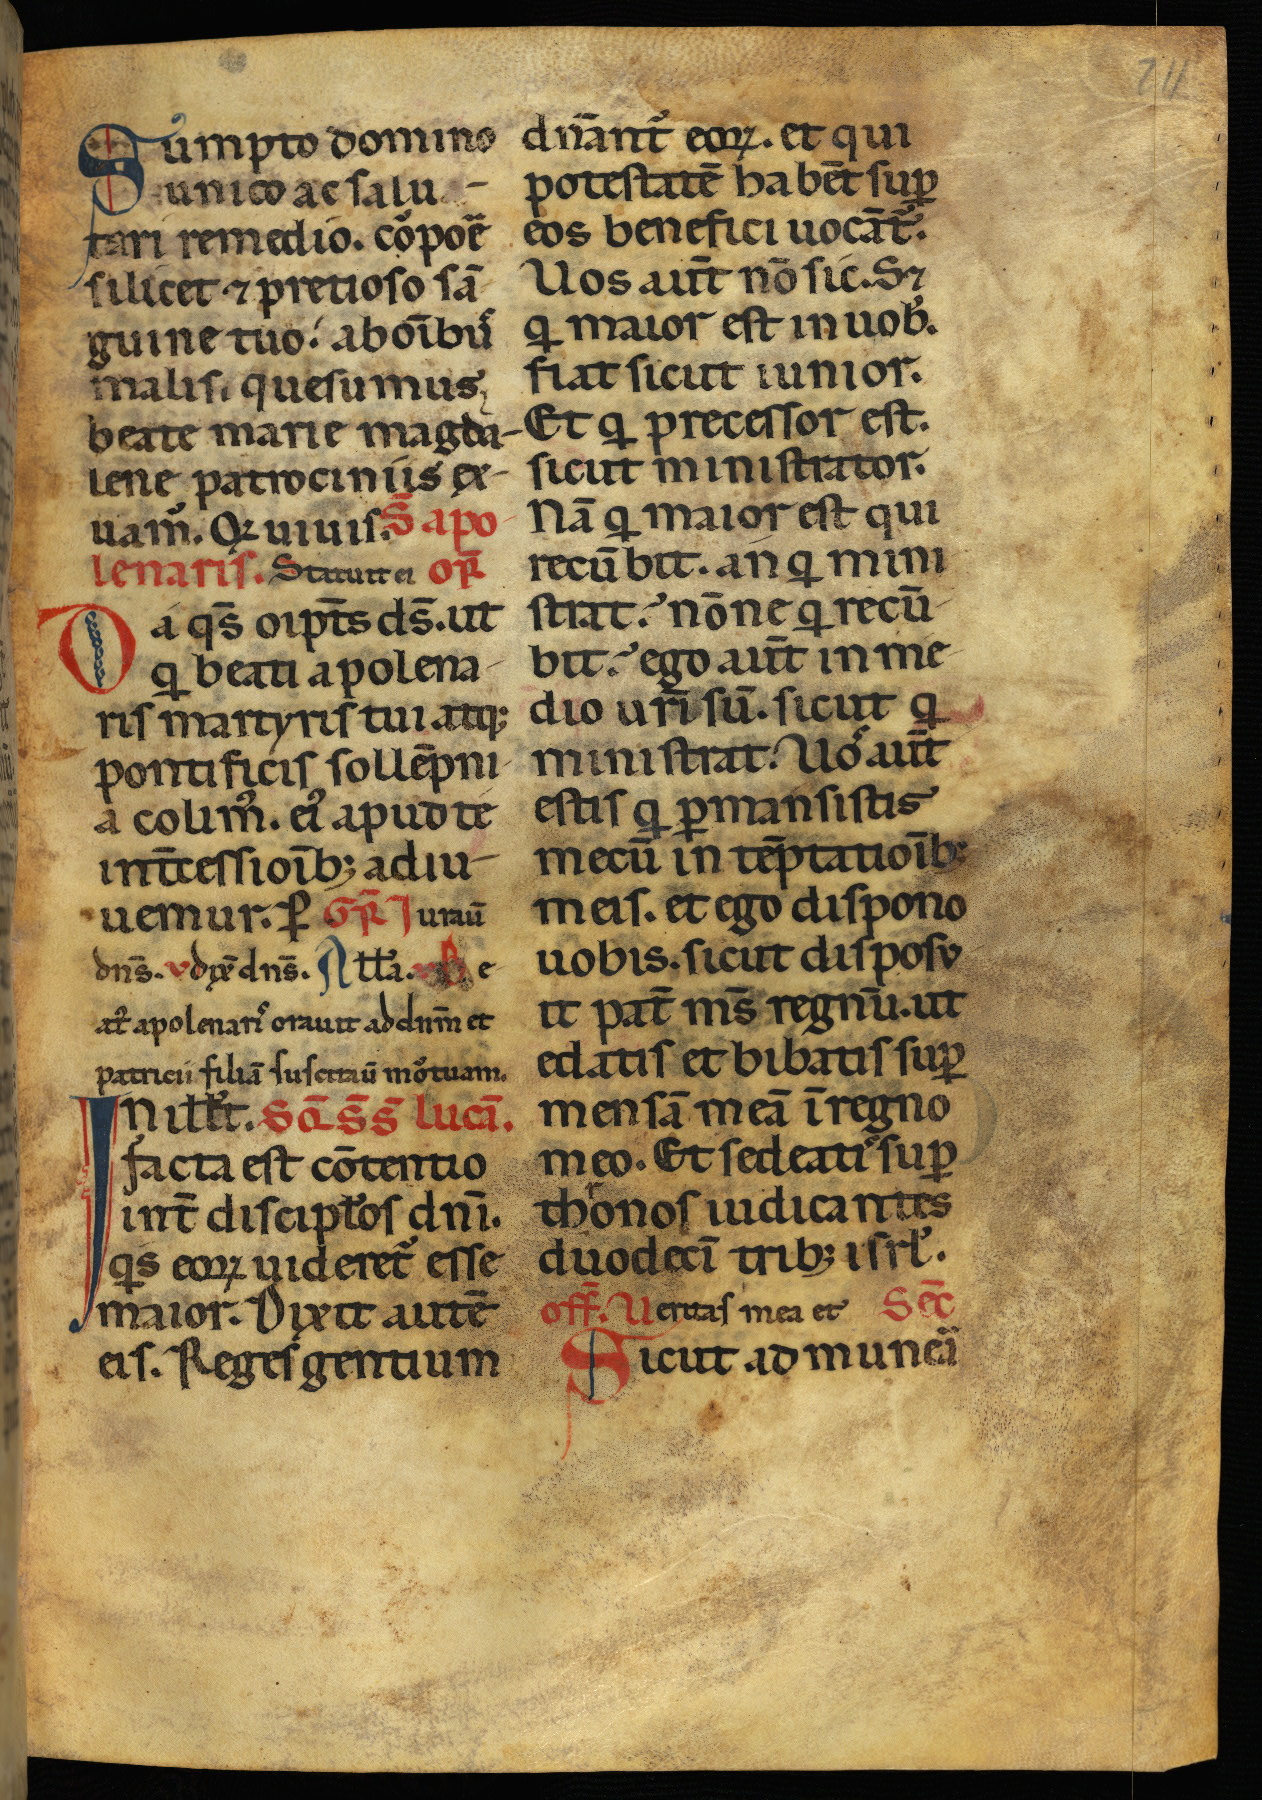 24
Sumpto domino
unico ac salu-
tari remedio. cõpoꝛẽ
silicet ⁊ pretioso sã
guine tuo: ab oĩbuſ
malis. quesumus
beate marie magda-
lene patrociniis ex-
uam᷑. Qꝛ uiuis. S̃ apo
lenaris. Statuit ei or̃
Da qs̃ oĩpt̃s ds̃. ut
q̲ beati apolena-
ris martyris tui. atq;
pontificis sollẽpni
a colim᷒. ei᷒ apud te
int̃cessioĩb; adiu-
uemur. ꝑ Gr̃ Iurauũ
dñs. v dix̃ dñs. All̃a. v Be
at᷒ apolenari᷒ orauit ad dñm et
patricii filiã suscitauũ mo᷑tuam.
In ill̃ t̃. Sꝗ̃ s̃ s̃ lucã.
facta est cõtentio
int̃ discipl̃os dñi.
qs̃ eoꝝ uideret᷑ esse
maior. Dixit autẽ
eis. Reges gentium
dñant᷑ eoꝝ. et qui
potestatẽ habẽt suꝑ
eos benefici uocãt᷑.
Uos aut̃ nõ sic. S⁊
q̲ maior est in uob᷒.
fiat sicut iunior.
Et q̲ precessor est.
sicut ministrator.
Nã q̲ maior est qui
recũbit. an q̲ mini
strat? nõne q̲ recũ-
bit? ego aut̃ in me-
dio ur̃i sũ. sicut q̲
ministrat. Uoſ aut̃
estis q̲ ꝑmansistis
mecũ in tẽptatioĩb;
meis. et ego dispono
uobis. sicut disposu
it pat̃ ms̃ regnũ. ut
edatis et bibatis suꝑ
mensã meã ĩ regno
meo. Et sedeatiſ suꝑ
thronos iudicantes
duodecĩ trib; isrl̃.
off̃. Ueritas mea et Sec̃
Sicut ad munãi